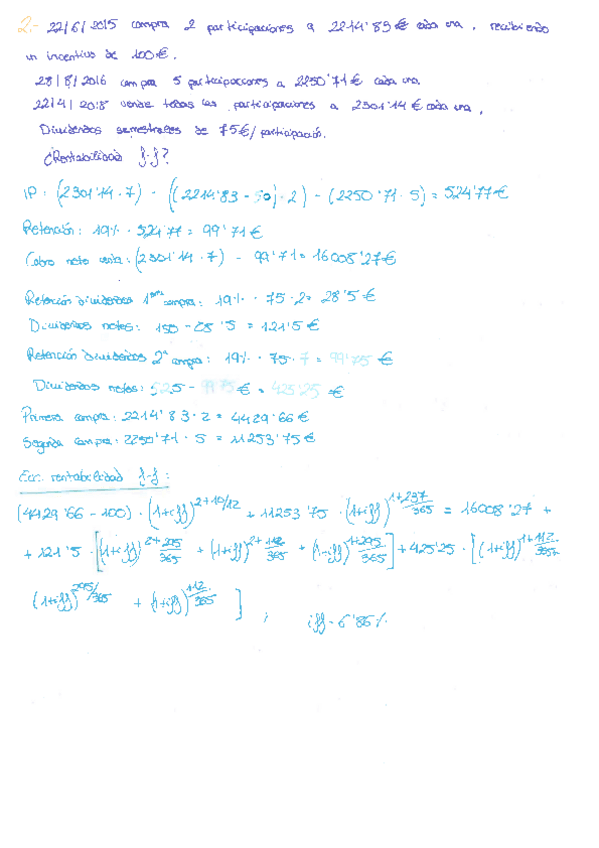 2.- 22/6/2015 compra 2 participaciones a 2214'83 € cada una, recibiendo
un incentivo de 100 €.
28/8/2016 compra 5 participaciones a 2250'71 € cada una.
22/4/2018 vende todas las participaciones a 2301'14 € cada una.
Dividendos semestrales de 75 €/participación.
¿Rentabilidad f-f?
IP = (2301'14 · 7) - ((2214'83 - 50) · 2) - (2250'71 · 5) = 524'77 €
Retención: 19% · 524'77 = 99'71 €
Cobro neto venta: (2301'14 · 7) - 99'71 = 16008'27 €
Retención dividendos 1era compra: 19% · 75 · 2 = 28'5 €
Dividendos netos: 150 - 28'5 = 121'5 €
Retención dividendos 2ª compra: 19% · 75 · 7 = 99'75 €
Dividendos netos: 525 - 99'75 € = 425'25 €
Primera compra: 2214'83 · 2 = 4429'66 €
Segunda compra: 2250'71 · 5 = 11253'75 €
Ecu. rentabilidad f-f:
(4429'66 - 100) · (1+iff)^2+10/12 + 11253'75 · (1+iff)^1+237/365 = 16008'27 +
+ 121'5 · [(1+iff)^2+295/365 + (1+iff)^2+112/365 + (1+iff)^1+295/365] + 425'25 · [(1+iff)^1+112/365 +
(1+iff)^295/365 + (1+iff)^112/365 ] ; iff = 6'86%